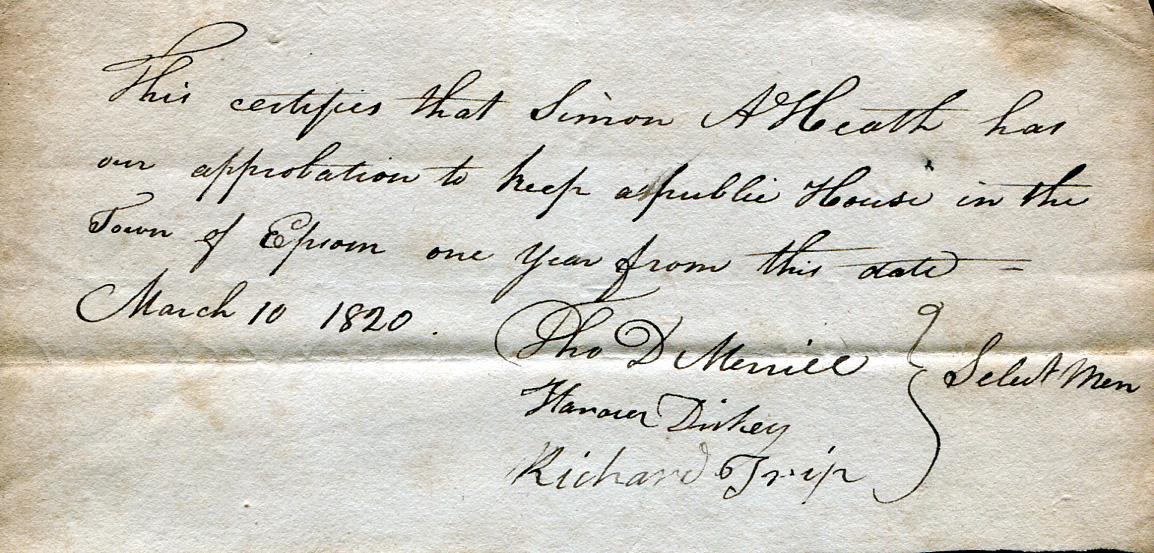 This certifies that Simon A Heath has
our approbation to keep a public House in the
Town of Epsom one Year from this date =
March 10 1820.
Tho D Merrill
Hanover Dickey
Richard Trip
Select Men